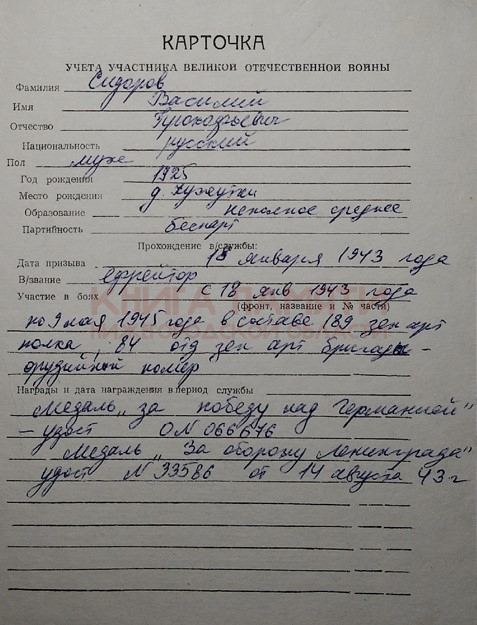 КАРТОЧКА
УЧЕТА УЧАСТНИКА ВЕЛИКОЙ ОТЕЧЕСТВЕННОЙ ВОЙНЫ
Фамилия Сидоров
Имя Василий
Отчество Прокопьевич
Национальность русский
Пол муж
Год рождения 1925
Место рождения д.
Образование неполное среднее
Партийность беспарт
Прохождение в/службы:
Дата призыва 18 января 1943 года
В/звание ефрейтор
Участие в боях с 18 янв 1943 года
(фронт, название и № части)
по 9 мая 1945 года в составе 189 зен арт
полка, 84 отд зен арт бригады -
орудийный номер
Награды и дата награждения в период службы
Медаль „за победу над Германией"
- удост ОN 066676
Медаль „За оборону Ленинграда"
удост N 33586 от 14 августа 43 г